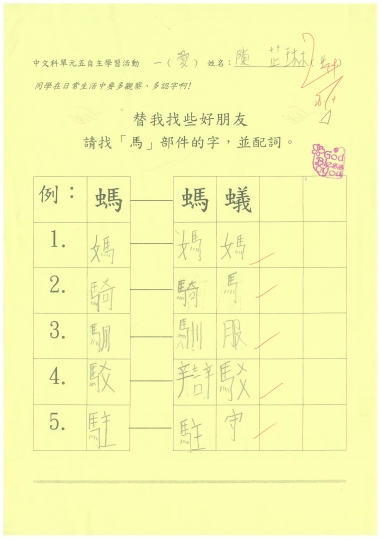 中文科單元五自主學習活動 一（愛） 姓名：陳芷琳
同學在日常生活中要多觀察、多認字啊！
替我找些好朋友
請找「馬」部件的字，並配詞。
God Bless You
例： 螞 — 螞蟻
1. 媽 — 媽媽
2. 騎 — 騎馬
3. 馴 — 馴服
4. 駁 — 辯駁
5. 駐 — 駐守